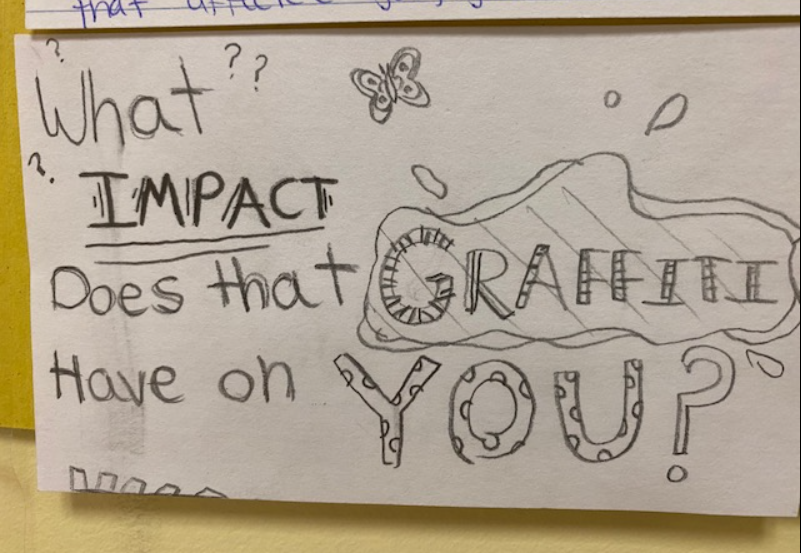 that
? ??
What
?. IMPACT
Does that GRAFFITI
Have on YOU?